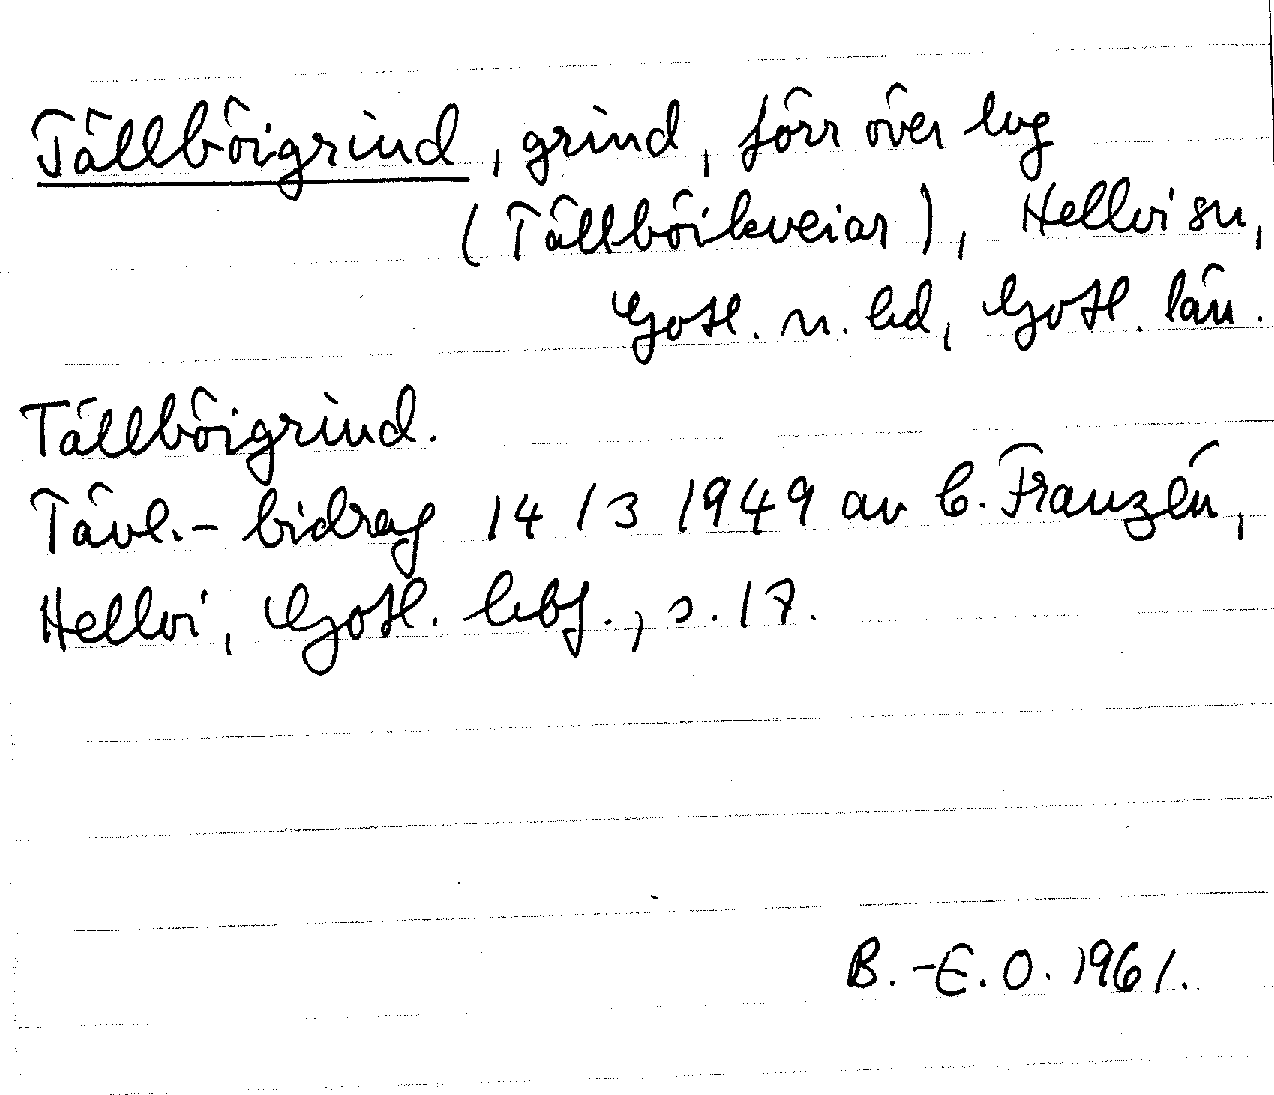 Tällböigrind, grind, förr över lvg
(Tällböikveiar), Hellvi sn,
Gotl. n. hd, Gotl. län.
Tällböigrind.
Tävl.-bidrag 14/3 1949 av C. Franzén,
Hellvi, Gotl. hbf., s. 17.
B.-E.O. 1961.